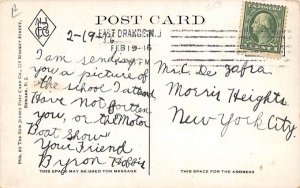 POST CARD
EAST ORANGE N.J.
FEB 19-16
2-19-16
I am sending
you a picture of
the school I attend
Have not forgotten
you, or the Motor
Boat Show
Your Friend
Byron
Mr. C. De Zafra
Morris Heights.
New York City.
PUB. BY THE NEW JERSEY POST CARD CO., MARKET STREET,
NEWARK, N.J.
THIS SPACE MAY BE USED FOR MESSAGE
THIS SPACE FOR THE ADDRESS